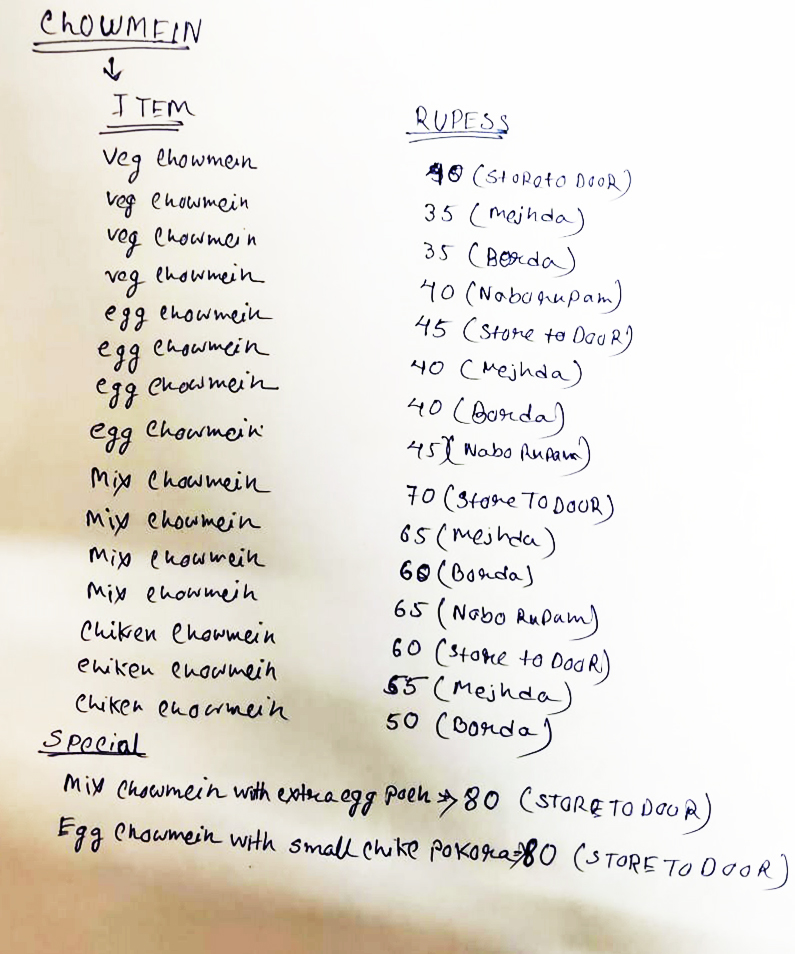 CHOWMEIN
↓
ITEM RUPESS
Veg Chowmein 40 (Store to DOOR)
veg Chowmein 35 (Mejhda)
veg Chowmein 35 (Borda)
veg Chowmein 40 (Naborupam)
egg chowmein 45 (Store to DOOR)
egg chowmein 40 (Mejhda)
egg chowmein 40 (Borda)
egg Chowmein 45 (Nabo Rupam)
Mix Chowmein 70 (Store TO DOOR)
Mix Chowmein 65 (Mejhda)
Mix Chowmein 60 (Borda)
Mix chowmein 65 (Nabo Rupam)
Chiken Chowmein 60 (Store to DOOR)
chiken chowmein 55 (Mejhda)
Chiken chowmein 50 (Borda)
Special
Mix chowmein with extra egg poch → 80 (STORE TO DOOR)
Egg chowmein with small chike pokora → 80 (STORE TO DOOR)